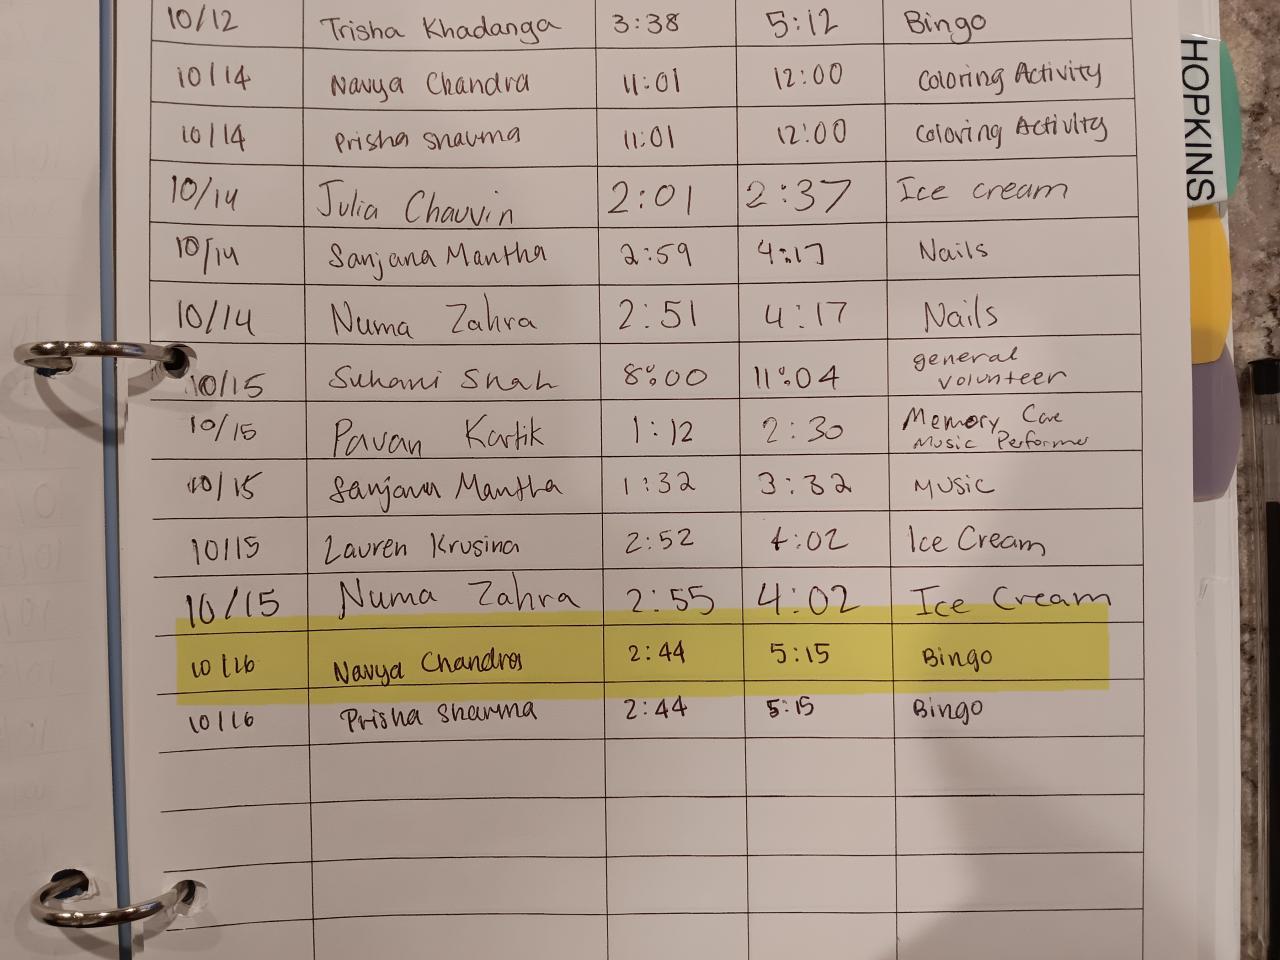 10/12 Trisha Khadanga 3:38 5:12 Bingo
10/14 Navya Chandra 11:01 12:00 Coloring Activity
10/14 Prisha Sharma 11:01 12:00 Coloring Activity
10/14 Julia Chauvin 2:01 2:37 Ice cream
10/14 Sanjana Mantha 2:59 4:17 Nails
10/14 Numa Zahra 2:51 4:17 Nails
10/15 Suhani Shah 8:00 11:04 general
volunteer
10/15 Pavan Kartik 1:12 2:30 Memory Care
Music Performer
10/15 Sanjana Mantha 1:32 3:32 Music
10/15 Lauren Krusina 2:52 4:02 Ice Cream
10/15 Numa Zahra 2:55 4:02 Ice Cream
10/16 Navya Chandra 2:44 5:15 Bingo
10/16 Prisha Sharma 2:44 5:15 Bingo
HOPKINS